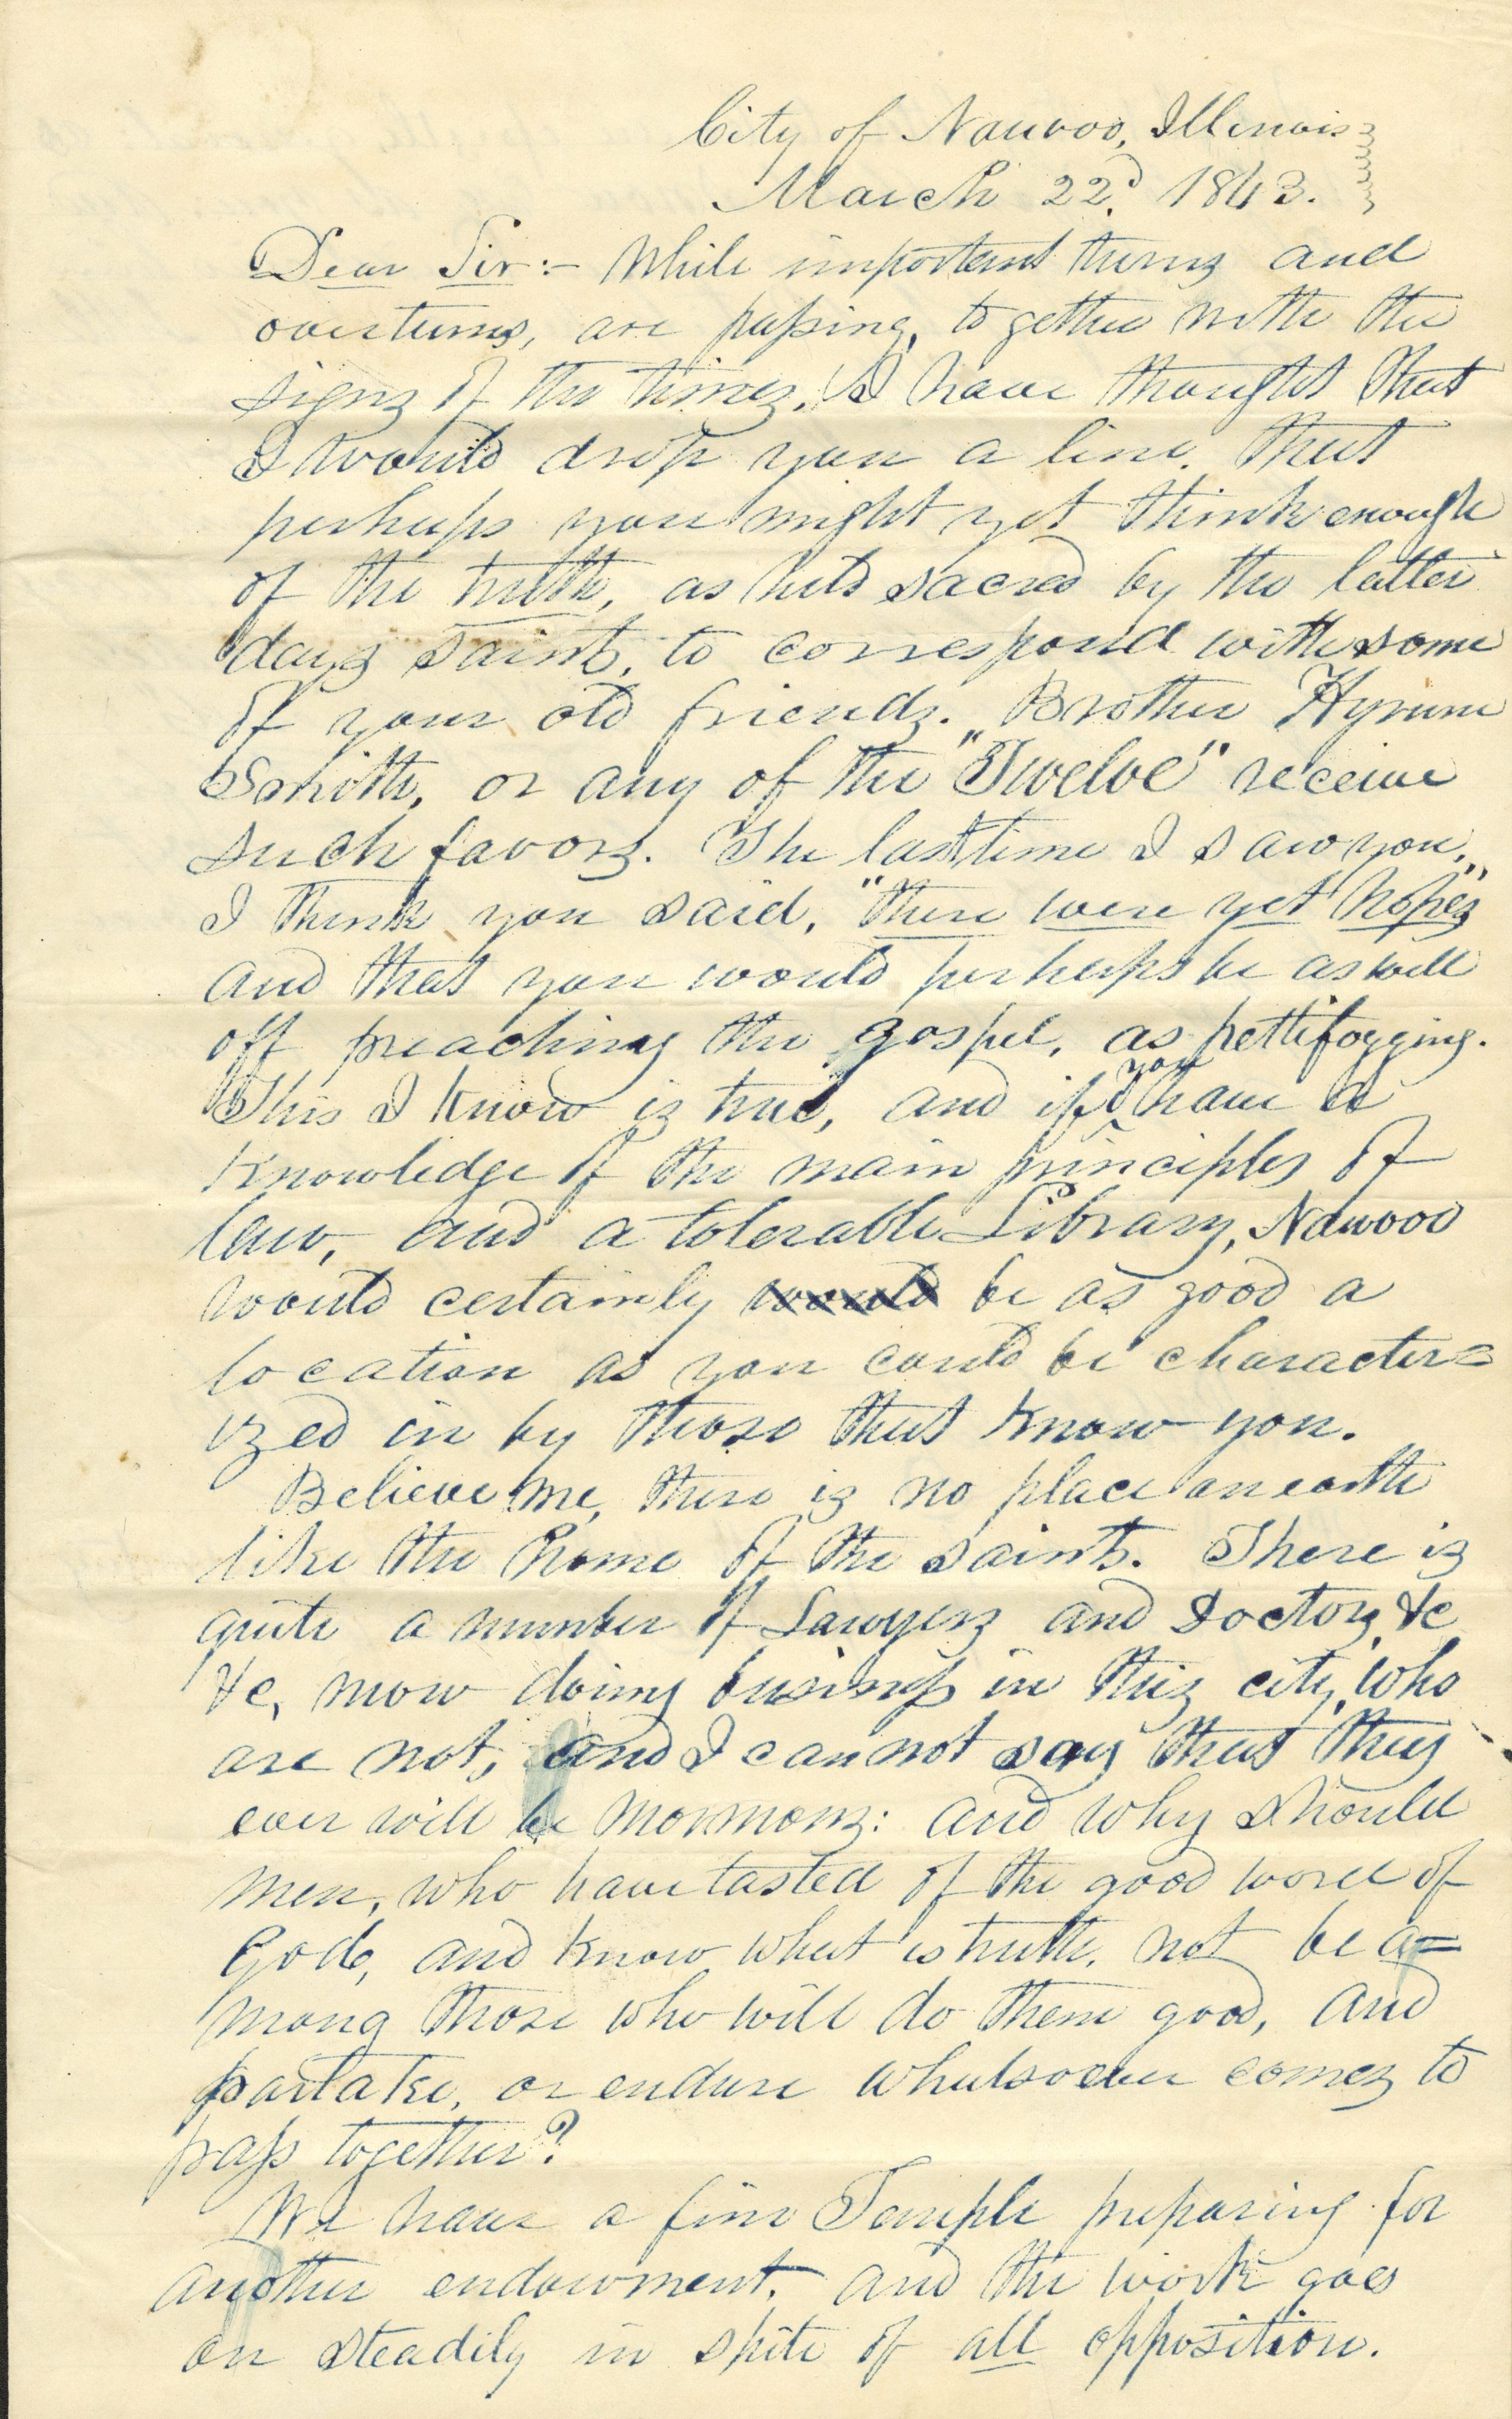 City of Nauvoo, Illinois
March 22d. 1843.
Dear Sir:- While important turns and
overturns, are passing, together with the
signs of the times, I have thought that
I would drop you a line, that
perhaps you might yet think enough
of the truth, as held sacred by the latter
days saints, to correspond with some
of your old friends. Brother Hyrum
Smith, or any of the "Twelve" receive
such favors. The last time I saw you,
I think you said, "there were yet hopes"
and that you would perhaps be as well
off preaching the gospel, as pettifogging.
This I know is true, and if you have a
knowledge of the main principles of
law, and a tolerable Library, Nauvoo
would certainly would be as good a
location as you could be character=
ized in by those that know you.
Believe me, there is no place on earth
like the home of the saints. There is
quite a number of Lawyers and Doctors, &c
&c, now doing business in this city, who
are not, and I cannot say that they
ever will be mormons: and why should
men, who have tasted of the good word of
God, and know what is truth, not be a=
mong those who will do them good, and
partake, or endure whatsoever comes to
pass together?
We have a fine Temple preparing for
another endowment, and the work goes
on steadily in spite of all opposition.